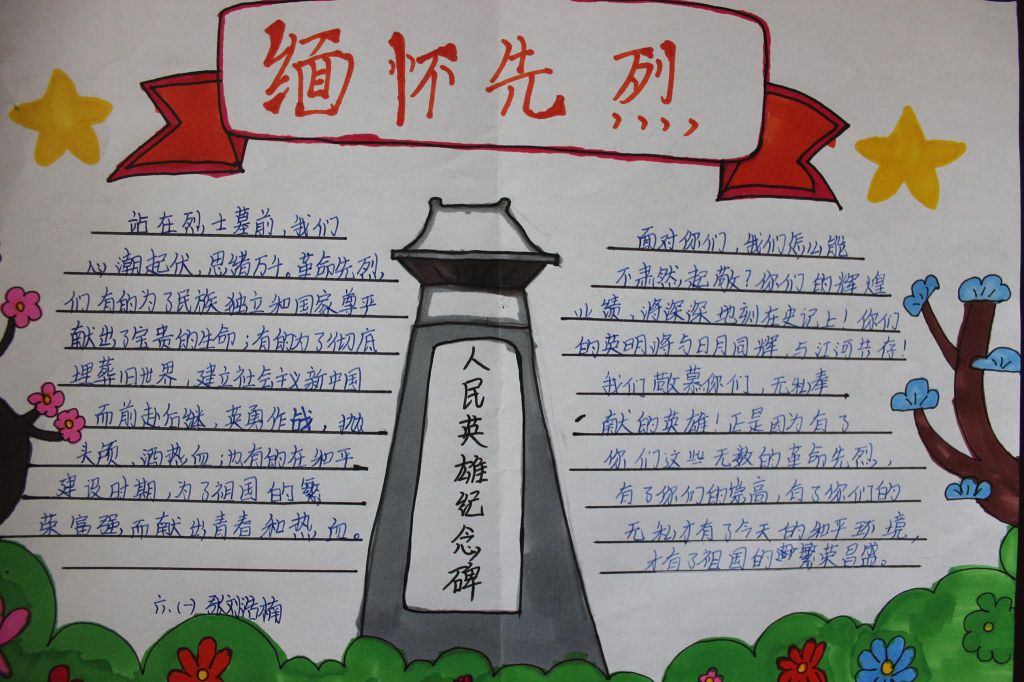 缅怀先烈
站在烈士墓前，我们
心潮起伏，思绪万千。革命先烈，
们有的为了民族独立和国家尊平
献出了宝贵的生命；有的为了彻底
埋葬旧世界，建立社会主义新中国
而前赴后继，英勇作战，抛
头颅，洒热血；也有的在和平
建设时期，为了祖国的繁
荣富强而献出青春和热血。
六.(一) 张刘浩楠
人民英雄纪念碑
面对你们，我们怎么能
不肃然起敬？你们的辉煌
业绩，将深深地刻在史记上！你们
的英明将与日月同辉，与江河共存！
我们敬慕你们，无私奉
献的英雄！正是因为有了
你们这些无数的革命先烈，
有了你们的崇高，有了你们的
无私才有了今天的和平环境，
才有了祖国的繁荣昌盛。